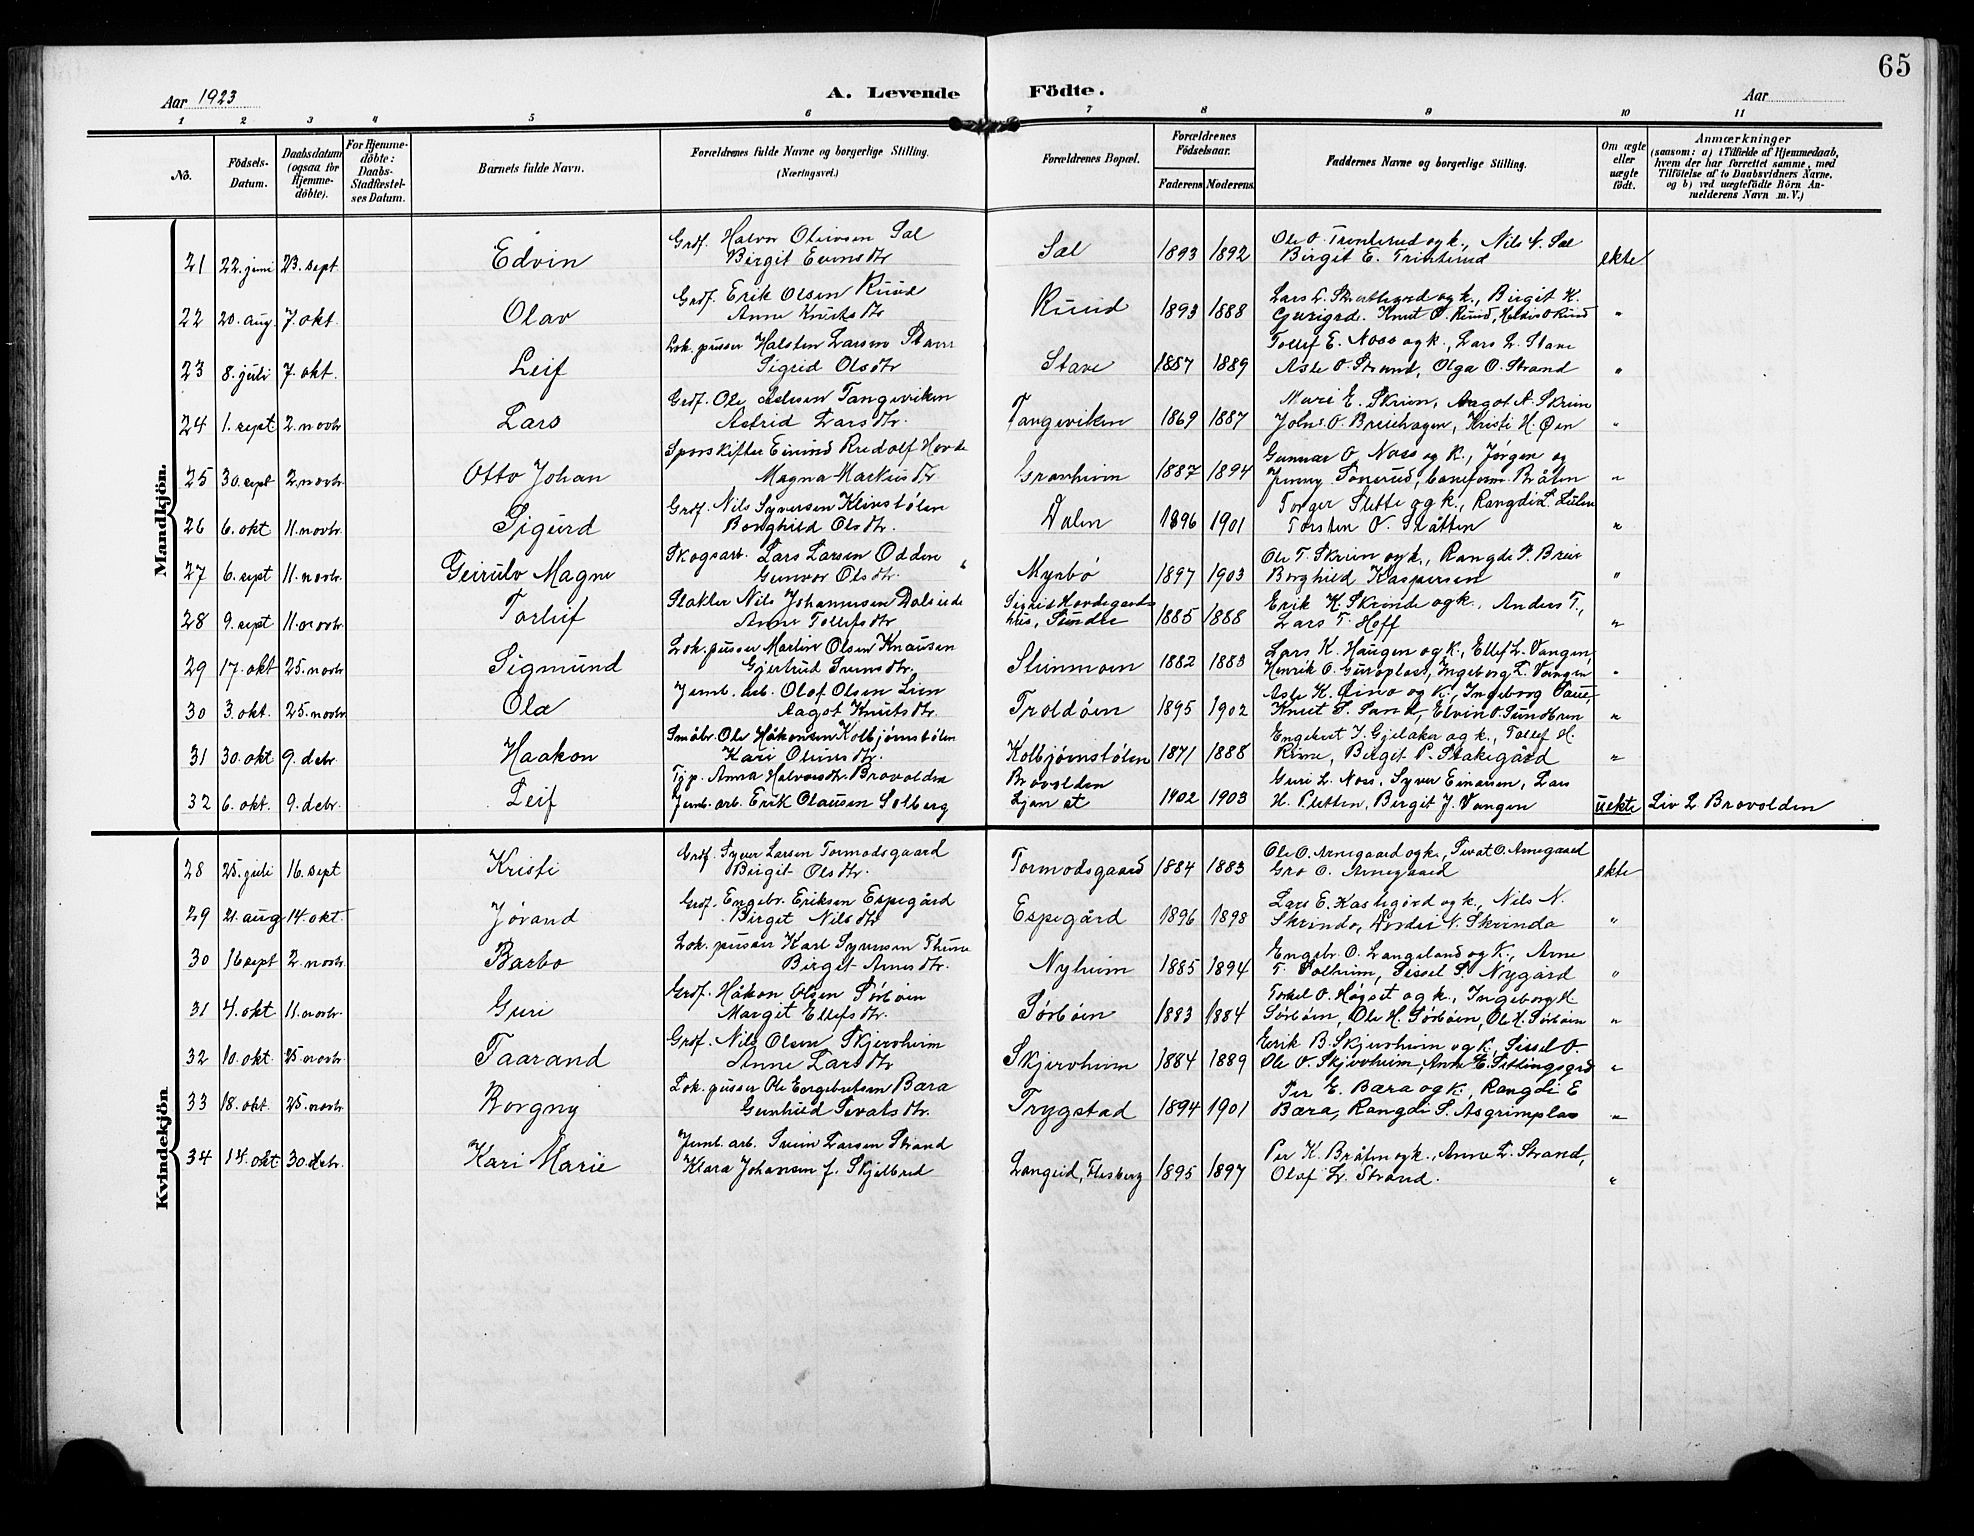 65
Aar 1923
A. Levende Födte.
Aar
1 2 3 4 5 6 7 8 9 10 11
No.
Födsels-Datum.
Daabsdatum (ogsaa for Hjemme-döbte).
For Hjemme-döbte: Daabs-Stadfæstel-ses Datum.
Barnets fulde Navn.
Forældrenes fulde Navne og borgerlige Stilling.
(Næringsvei.)
Forældrenes Bopæl.
Forældrenes Födselsaar.
Faderens Moderens
Faddernes Navne og borgerlige Stilling.
Om ægte eller uægte födt.
Anmærkninger
(saasom: a) i Tilfælde af Hjemmedaab,
hvem der har forrettet samme, med
Tilföielse af to Daabsvidners Navne,
og b) ved uægtefödte Börn An-
melderens Navn m. V.)
Mandkjön.
Grdf. Halvor Olsen Sal
21 22. juni 23. sept. Edvin Birgit Evensdtr Sal 1893 1892 Birgit E. Trintrud ekte
Ole O. Trintrud og k., Nils N. Sal
Grdf. Erik Olsen Ruud
22 20. aug. 7. okt. Olav Anne Knutsdtr Ruud 1893 1888 Knut O. Ruud, "
Lars L. og k., Birgit K.
Lok. pusser Halsten Larsen Stave
23 8. juli 7. okt. Leif Sigrid Olsdtr Stave 1887 1889 Asle O. Strand, Olga O. Strand "
Tollef E. Noss og k., Lars L. Stave
Grdf. Ole Tangeviken
24 1. sept 2. novbr Lars Astrid Larsdtr. Tangeviken 1869 1887 John O. Breiehagen, Kristi H. Øen "
Mari E. Skrien, Aagot A. Skrien
Sporskifter Eivind Rudolf Hovde
25 30. sept 2. novbr. Otto Johan Magna Markusdtr Granheim 1887 1894 Jenny Bråten "
Gunnar O. Noss og k., Jørgen og
Grdf. Nils Syversen Klinstølen
26 6. okt 11. novbr. Sigurd Borghild Olsdtr. Dalen 1896 1901 Torsten O. Slåtten "
Torger Slette og k., Rangdi L.
Skogsarb. Lars Larsen Odden
27 6. sept 11. novbr. Geirulv Magne Gunvor Olsdtr. Myrbö 1897 1903 Borghild Kaspersen "
Ole T. Skrien og k., Rangdi
Slakter Nils Johannesen
28 9. sept 11. novbr. Torleif Anne Tollefsdtr Sundre 1885 1888 Lars T. Hoff "
Erik K. Skrinde og k., Anders T.,
Lok. pusser Martin Olsen Knausen
29 17. okt 25. novbr. Sigmund Gjertrud Svensdtr. Steinmoen 1882 1883 Henrik O. Guroplass, Ingeborg L. Vangen "
Lars K. Haugen og k., Ellef L. Vangen,
Jernb. arb. Olaf Olsen Lien
30 3. okt. 25. novbr. Ola Aagot Knutsdtr. Troldöien 1895 1902 Knut S. Sand, "
Asle K. og k., Ingeborg
Småbr. Ole Håkonsen Kolbjørnstølen
31 30. okt 9. debr. Haakon Kari Olsdtr. Kolbjørnstølen 1871 1888 Rime, Birgit P. Stakegård "
Engebret J. Gjelaker og k., Tollef H.
Tjp. Anna Halvorsdtr. Brovolden Brovolden
32 6. okt. 9. debr. Leif Jernb. arb. Erik Olausen Solberg Ljan st 1902 1903 H. Pletten, Birgit J. Vangen uekte Liv L. Brovolden
Guri L. Noss, Syver Einarsen, Lars
Kvindekjön
Grdf. Syver Larsen Tormodsgaard
28 25. juli 16. sept Kristi Birgit Olsdtr. Tormodsgaard 1884 1883 Gro O. Arnegaard ekte
Ole O. Arnegaard og k., Sevat O. Arnegaard
Grdf. Engebr. Eriksen Espegård
29 21. aug 14. okt. Jørand Birget Nilsdtr Espegård 1896 1898 Skrindo, N. Skrindo "
Lars E. og k., Nils N.
Lok. pusser Karl Syversen Thune
30 16 sept 2. novbr. Barbo Birget Arnesdtr. Nyheim 1885 1894 T. Solheim, Sissel S. Nygård "
Engebr. O. Langeland og k., Arne
Grdf. Håkon Olsen Sørbøen
31 4. okt 11. novbr. Guri Margit Ellefsdtr. Sørbøen 1883 1884 Sørbøen, Ole H. Sørbøen, Ole K. Sørbøen "
Torkel O. Høgset og k., Ingeborg H
Grdf. Nils Olsen Skjervheim
32 10. okt 25. novbr Taarand Anne Larsdtr Skjervheim 1884 1889 Ole O. Skjervheim, Anne E. "
Erik B. Skjervheim og k., Sissel O.
Lok. pusser Ole Engebretsen Bæra
33 18. okt. 25. novbr Borgny Gunhild Sevatsdtr. Trygstad 1894 1901 Bæra, Rangdi S. Asgrimplas "
Per E. Bæra og k., Rangdi E
Jernb. arb. Svein Larsen Strand
34 14. okt 30. debr. Kari Marie Klara Johansen f. Skjelbred Langeid, Flesberg 1895 1897 Olaf L. Strand. "
Per K. Bråten og k., Anne L. Strand,